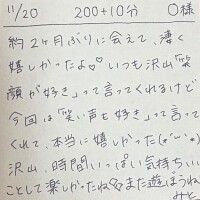 11/20 200+10分 O様
約2ヶ月ぶりに会えて、凄く
嬉しかったよ♡♡ いつも沢山"笑
顔が好き"って言ってくれるけど
今回は"笑い声も好き"って言って
くれて、本当に嬉しかった(*´ω`*)
沢山、時間いっぱい気持ちいい
ことして楽しかったね♡また遊ぼうね
みと